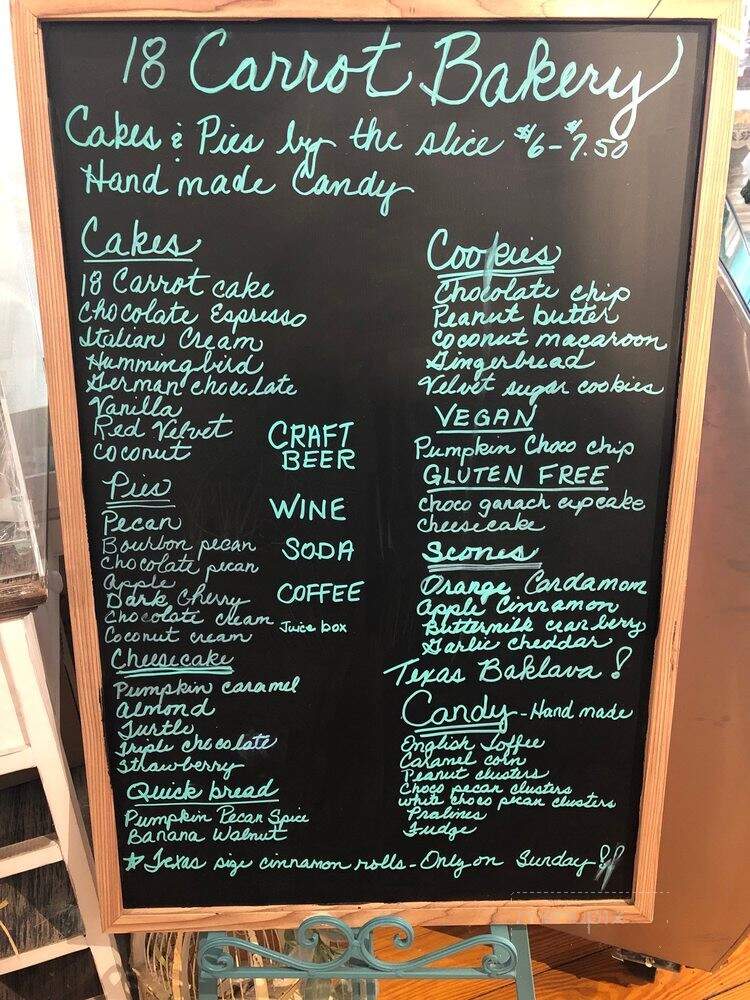 18 Carrot Bakery
Cakes & Pies by the slice $6-$7.50
Hand made Candy
Cakes
18 Carrot cake
Chocolate Espresso
Italian Cream
Hummingbird
German chocolate
Vanilla
Red Velvet
Coconut
Pies
Pecan
Bourbon pecan
Chocolate pecan
Apple
Dark Cherry
Chocolate cream
Coconut cream
Cheesecake
Pumpkin caramel
Almond
Turtle
Triple chocolate
Strawberry
Quick bread
Pumpkin Pecan Spice
Banana Walnut
CRAFT
BEER
WINE
SODA
COFFEE
Juice box
Cookies
Chocolate chip
Peanut butter
Coconut macaroon
Gingerbread
Velvet sugar cookies
VEGAN
Pumpkin Choco chip
GLUTEN FREE
Choco ganach cupcake
Cheesecake
Scones
Orange Cardamom
Apple Cinnamon
Buttermilk cranberry
Garlic cheddar
Texas Baklava!
Candy - Hand made
English Toffee
Caramel corn
Peanut clusters
Choco pecan clusters
White choco pecan clusters
Pralines
Fudge
* Texas size cinnamon rolls - Only on Sunday!!